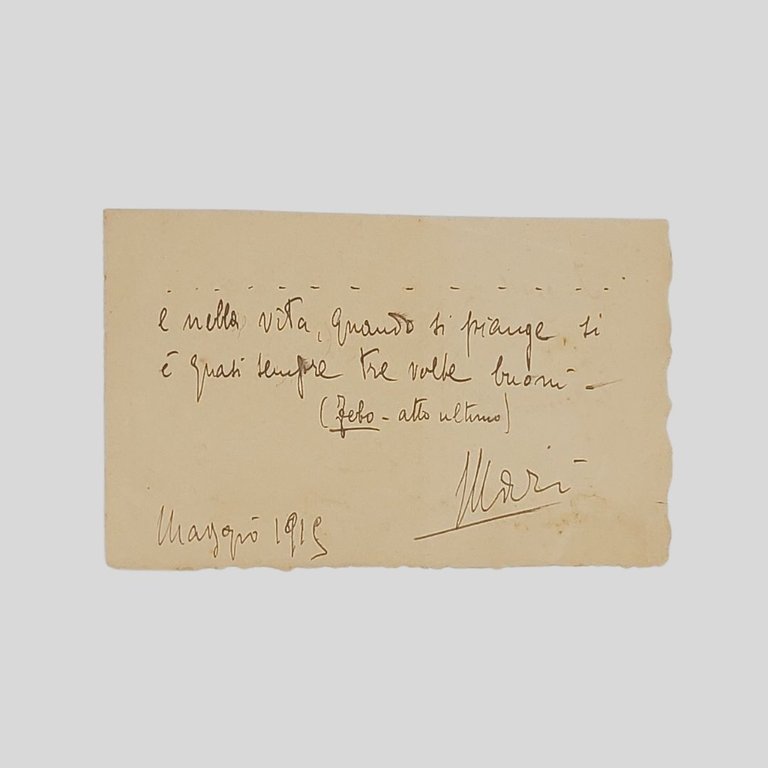 . . . . . . . . . . . . . .
e nella vita, quando si piange, si
è quasi sempre tre volte buoni -
(Zebo - atto ultimo)
Mari
Maggio 1915